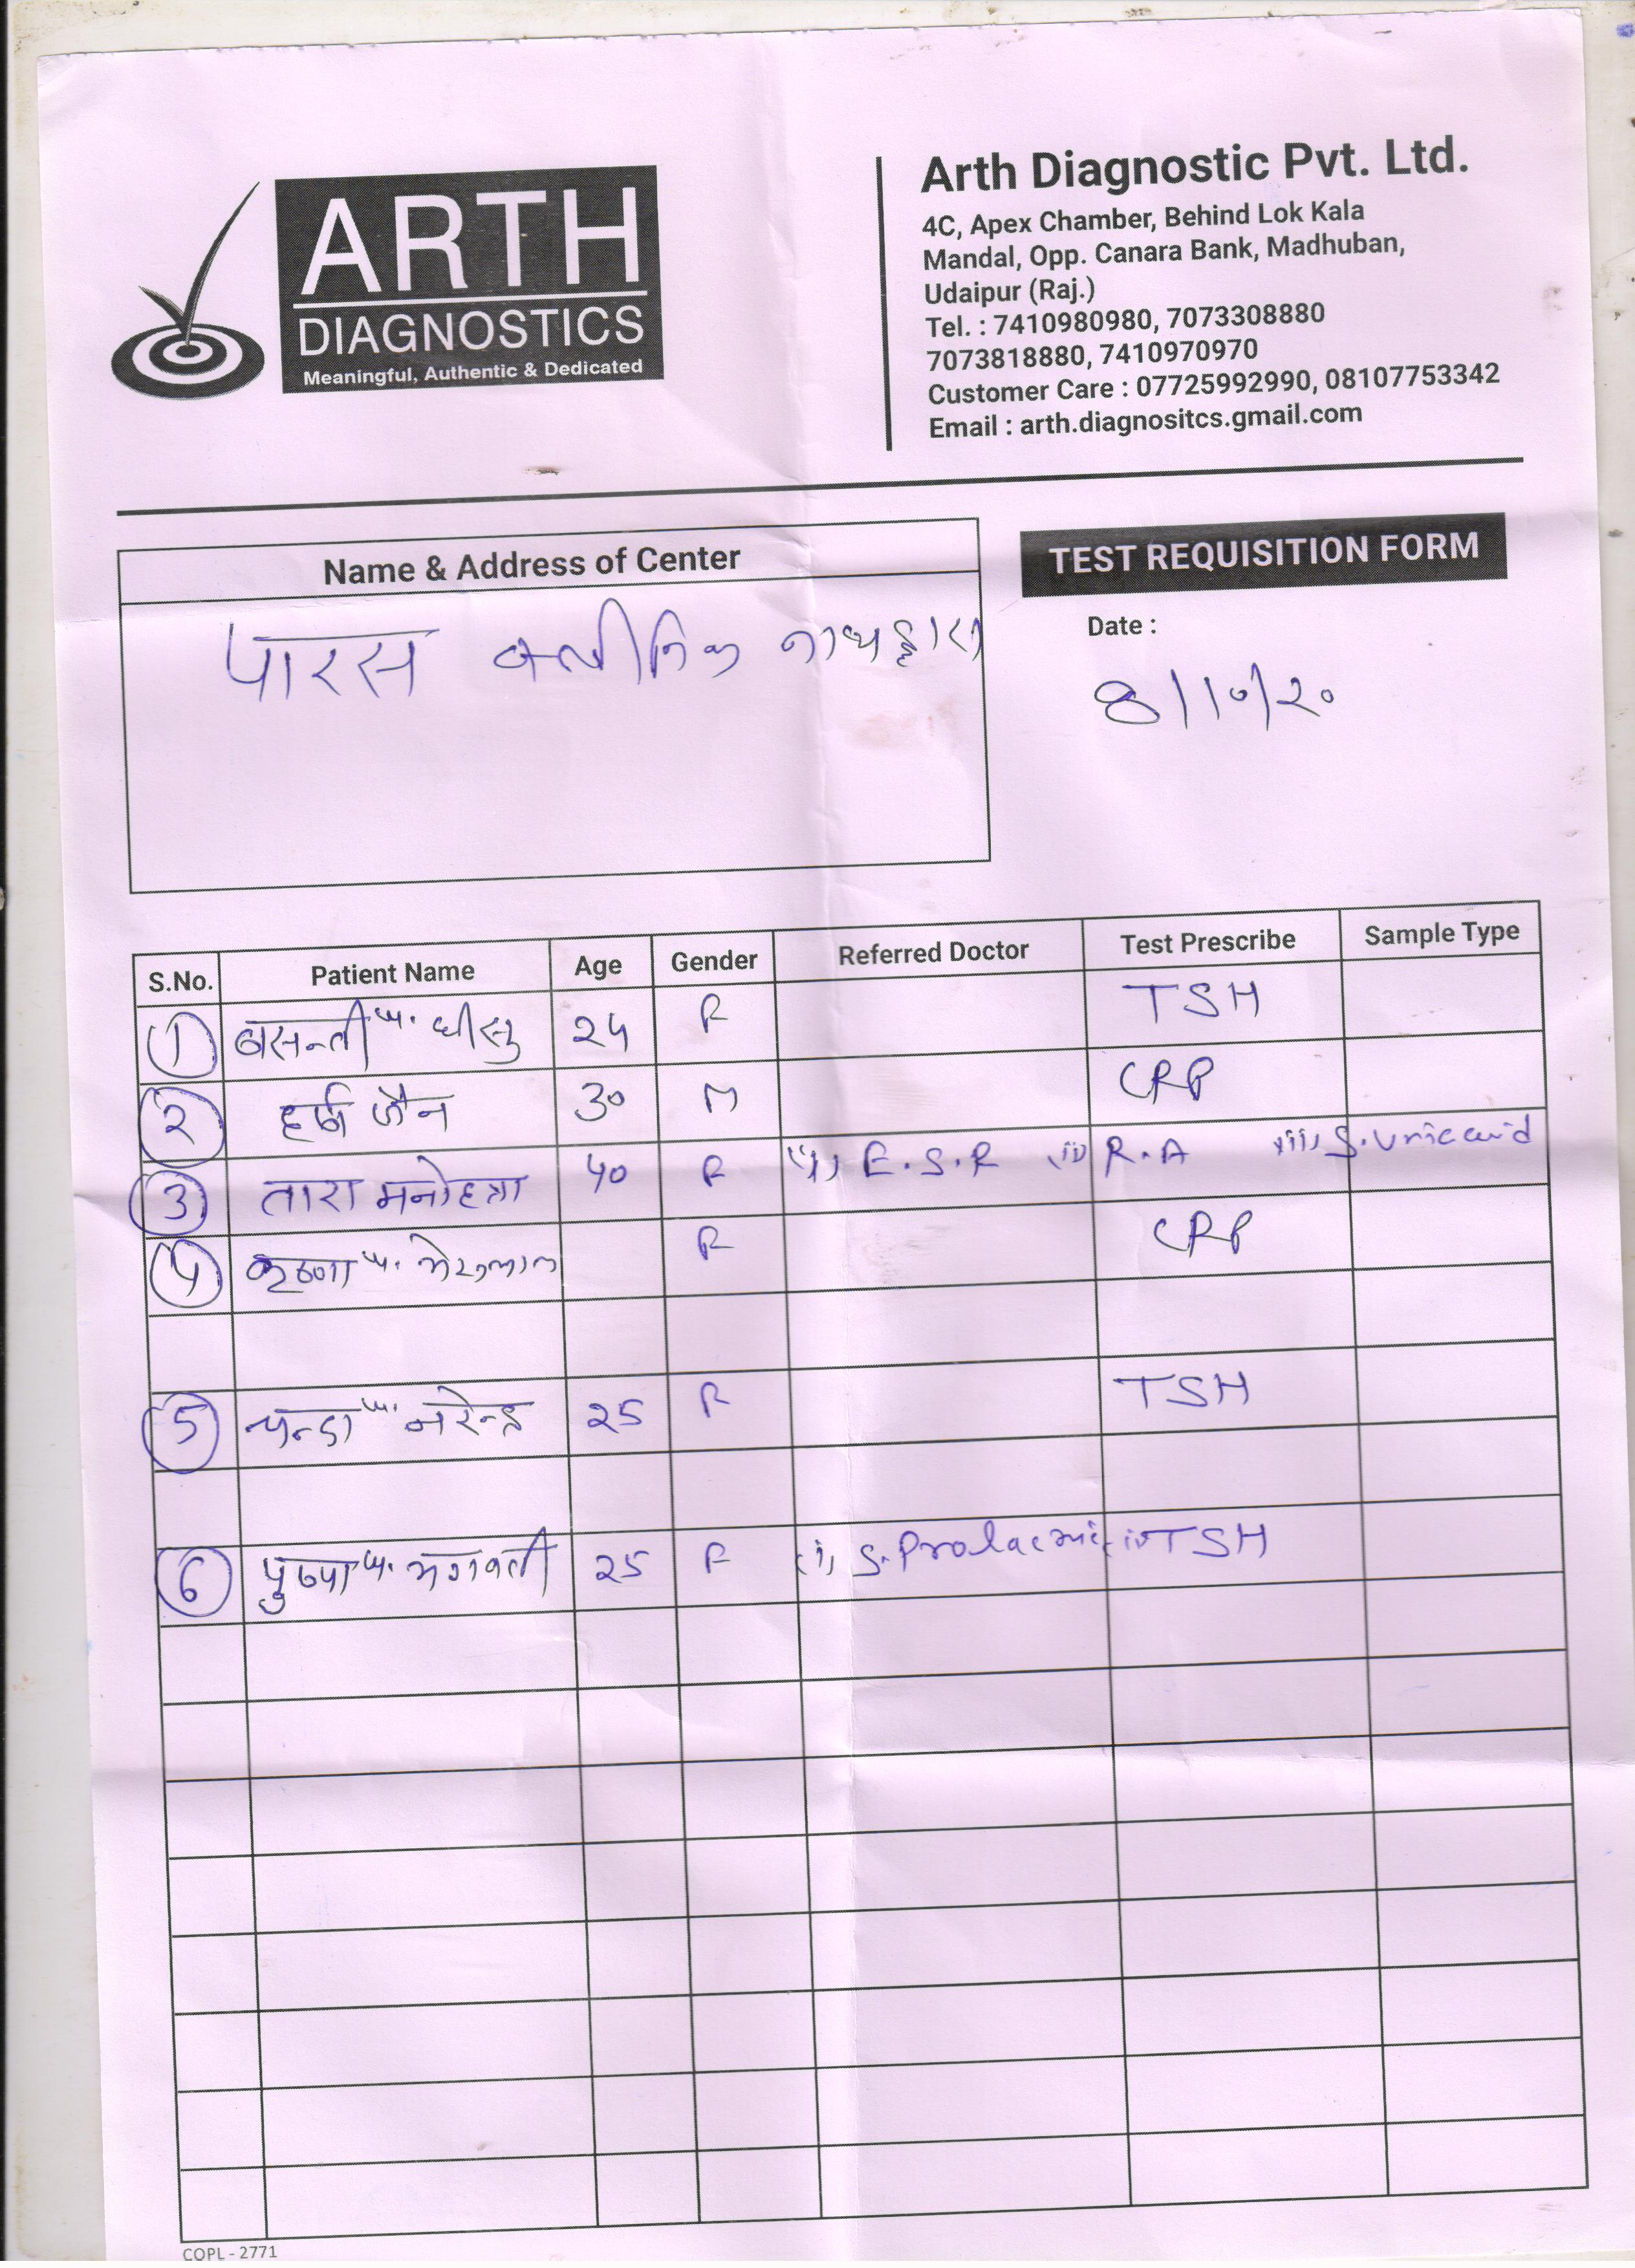 ARTH
DIAGNOSTICS
Meaningful, Authentic & Dedicated
Arth Diagnostic Pvt. Ltd.
4C, Apex Chamber, Behind Lok Kala
Mandal, Opp. Canara Bank, Madhuban,
Udaipur (Raj.)
Tel. : 7410980980, 7073308880
7073818880, 7410970970
Customer Care : 07725992990, 08107753342
Email : arth.diagnositcs.gmail.com
Name & Address of Center
पारस क्लीनिक नाथद्वारा
TEST REQUISITION FORM
Date :
8/10/20
S.No. Patient Name Age Gender Referred Doctor Test Prescribe Sample Type
1 बसन्ती w. घीसु 24 F TSH
2 हर्ष जैन 30 M CRP
3 तारा 40 F (i) E.S.R (ii) R.A (iii) S. Uric acid
4 कृष्णा w. F CRP
5 चन्दा w. नरेन्द्र 25 F TSH
6 पुष्पा w. भगवती 25 F (i) S. (ii) TSH
COPL - 2771